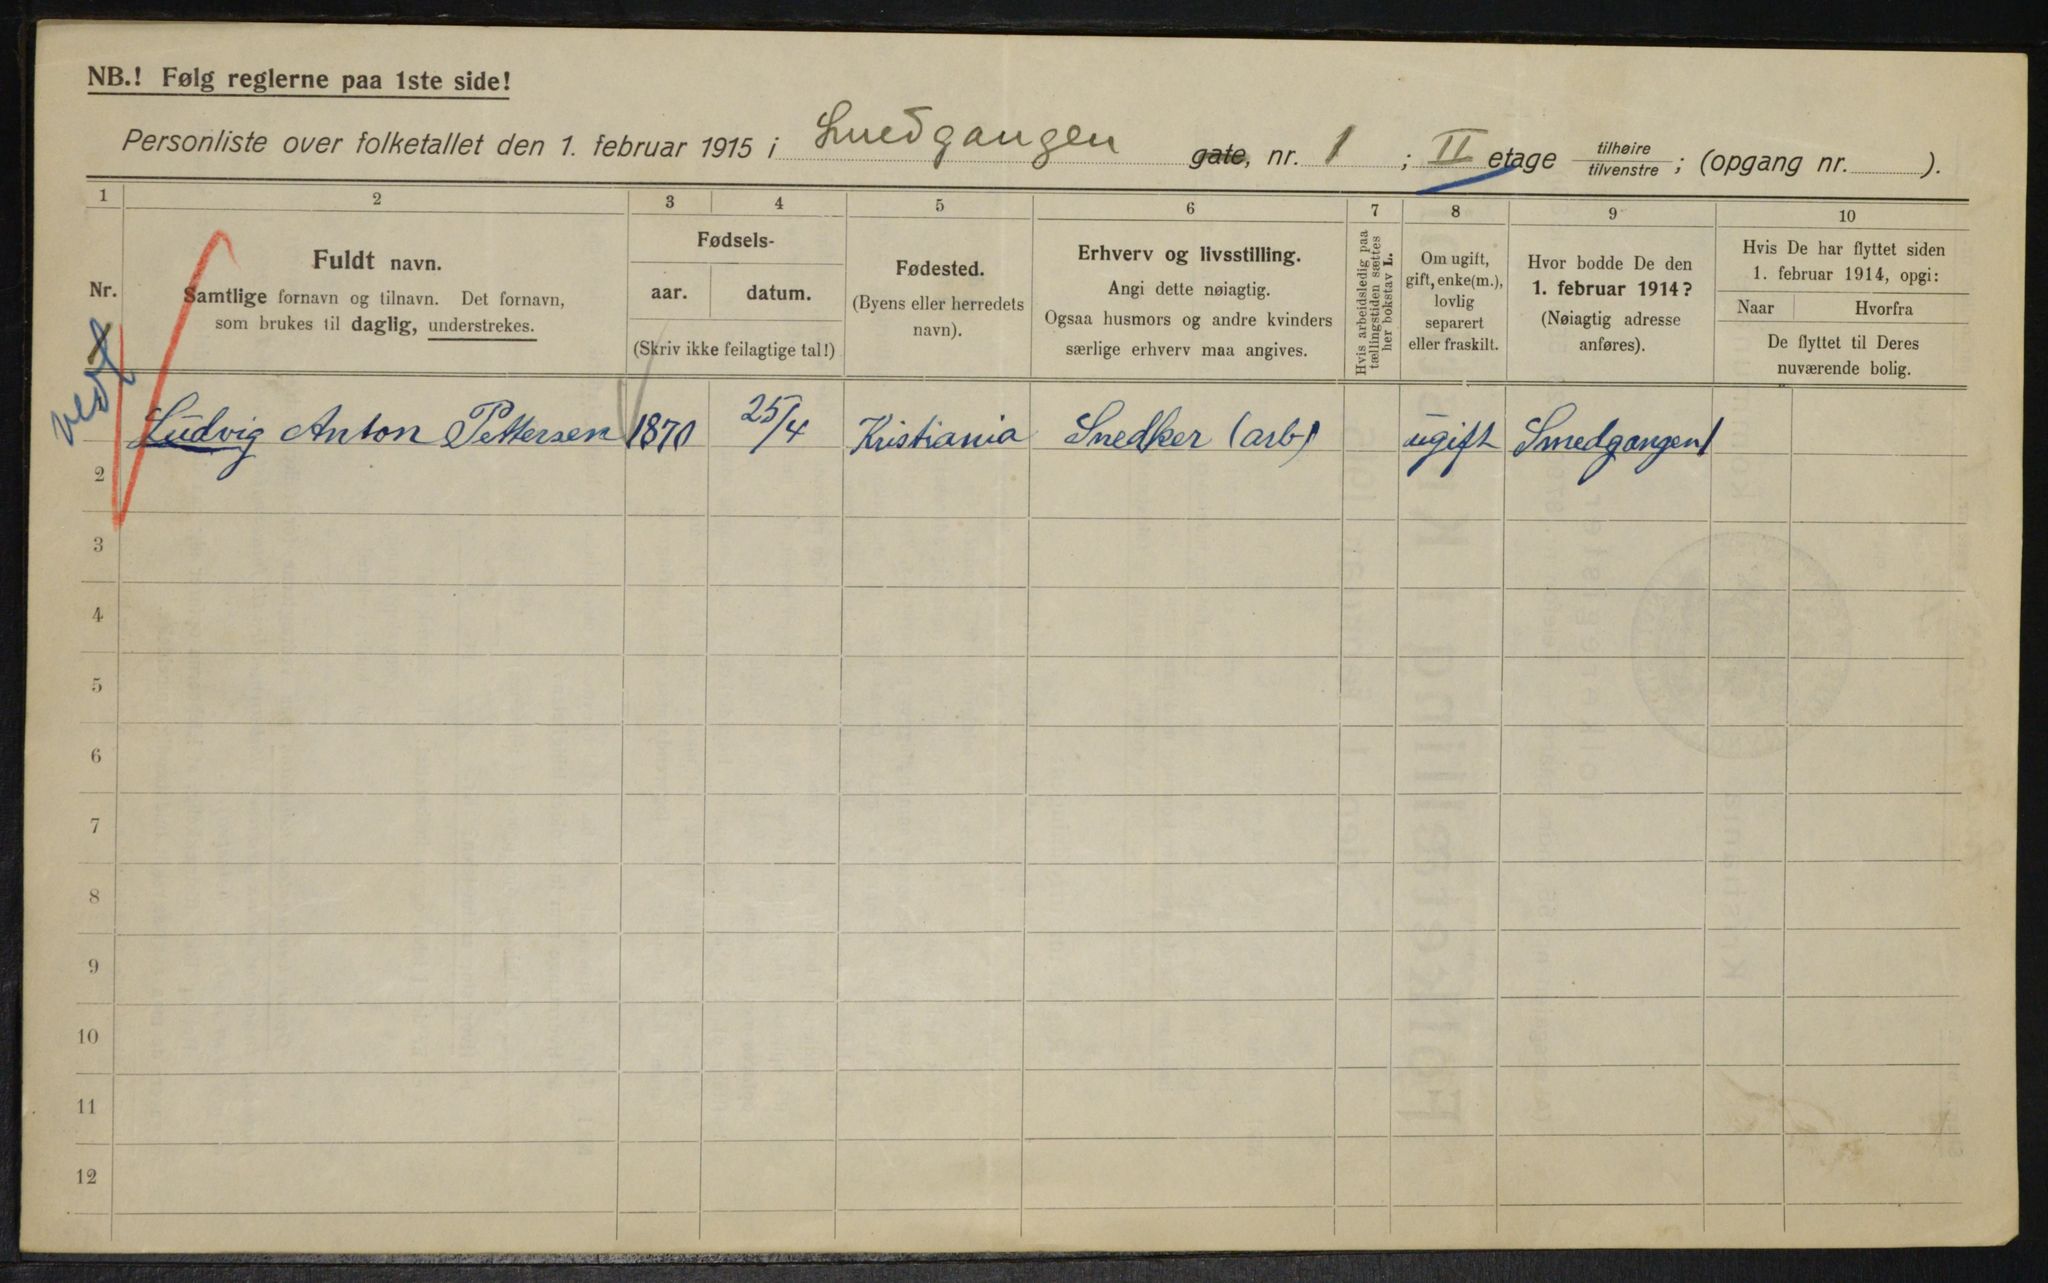 NB.! Følg reglerne paa 1ste side!
Personliste over folketallet den 1. februar 1915 i Smedgangen gate, nr. 1 ; II etage tilhøire tilvenstre ; (opgang nr. ).
1 2 3 4 5 6 7 8 9 10
Nr.
Fuldt navn.
Samtlige fornavn og tilnavn. Det fornavn,
som brukes til daglig, understrekes.
Fødsels-
aar. datum.
(Skriv ikke feilagtige tal!)
Fødested.
(Byens eller herredets
navn).
Erhverv og livsstilling.
Angi dette nøiagtig.
Ogsaa husmors og andre kvinders
særlige erhverv maa angives.
Hvis arbeidsledig paa
tællingstiden sættes
her bokstav L.
Om ugift,
gift, enke(m.),
lovlig
separert
eller fraskilt.
Hvor bodde De den
1. februar 1914?
(Nøiagtig adresse
anføres).
Hvis De har flyttet siden
1. februar 1914, opgi:
Naar Hvorfra
De flyttet til Deres
nuværende bolig.
Ludvig Anton Pettersen 1870 25/4 Kristiania Snedker (arb) ugift Smedgangen 1
2
3
4
5
6
7
8
9
10
11
12